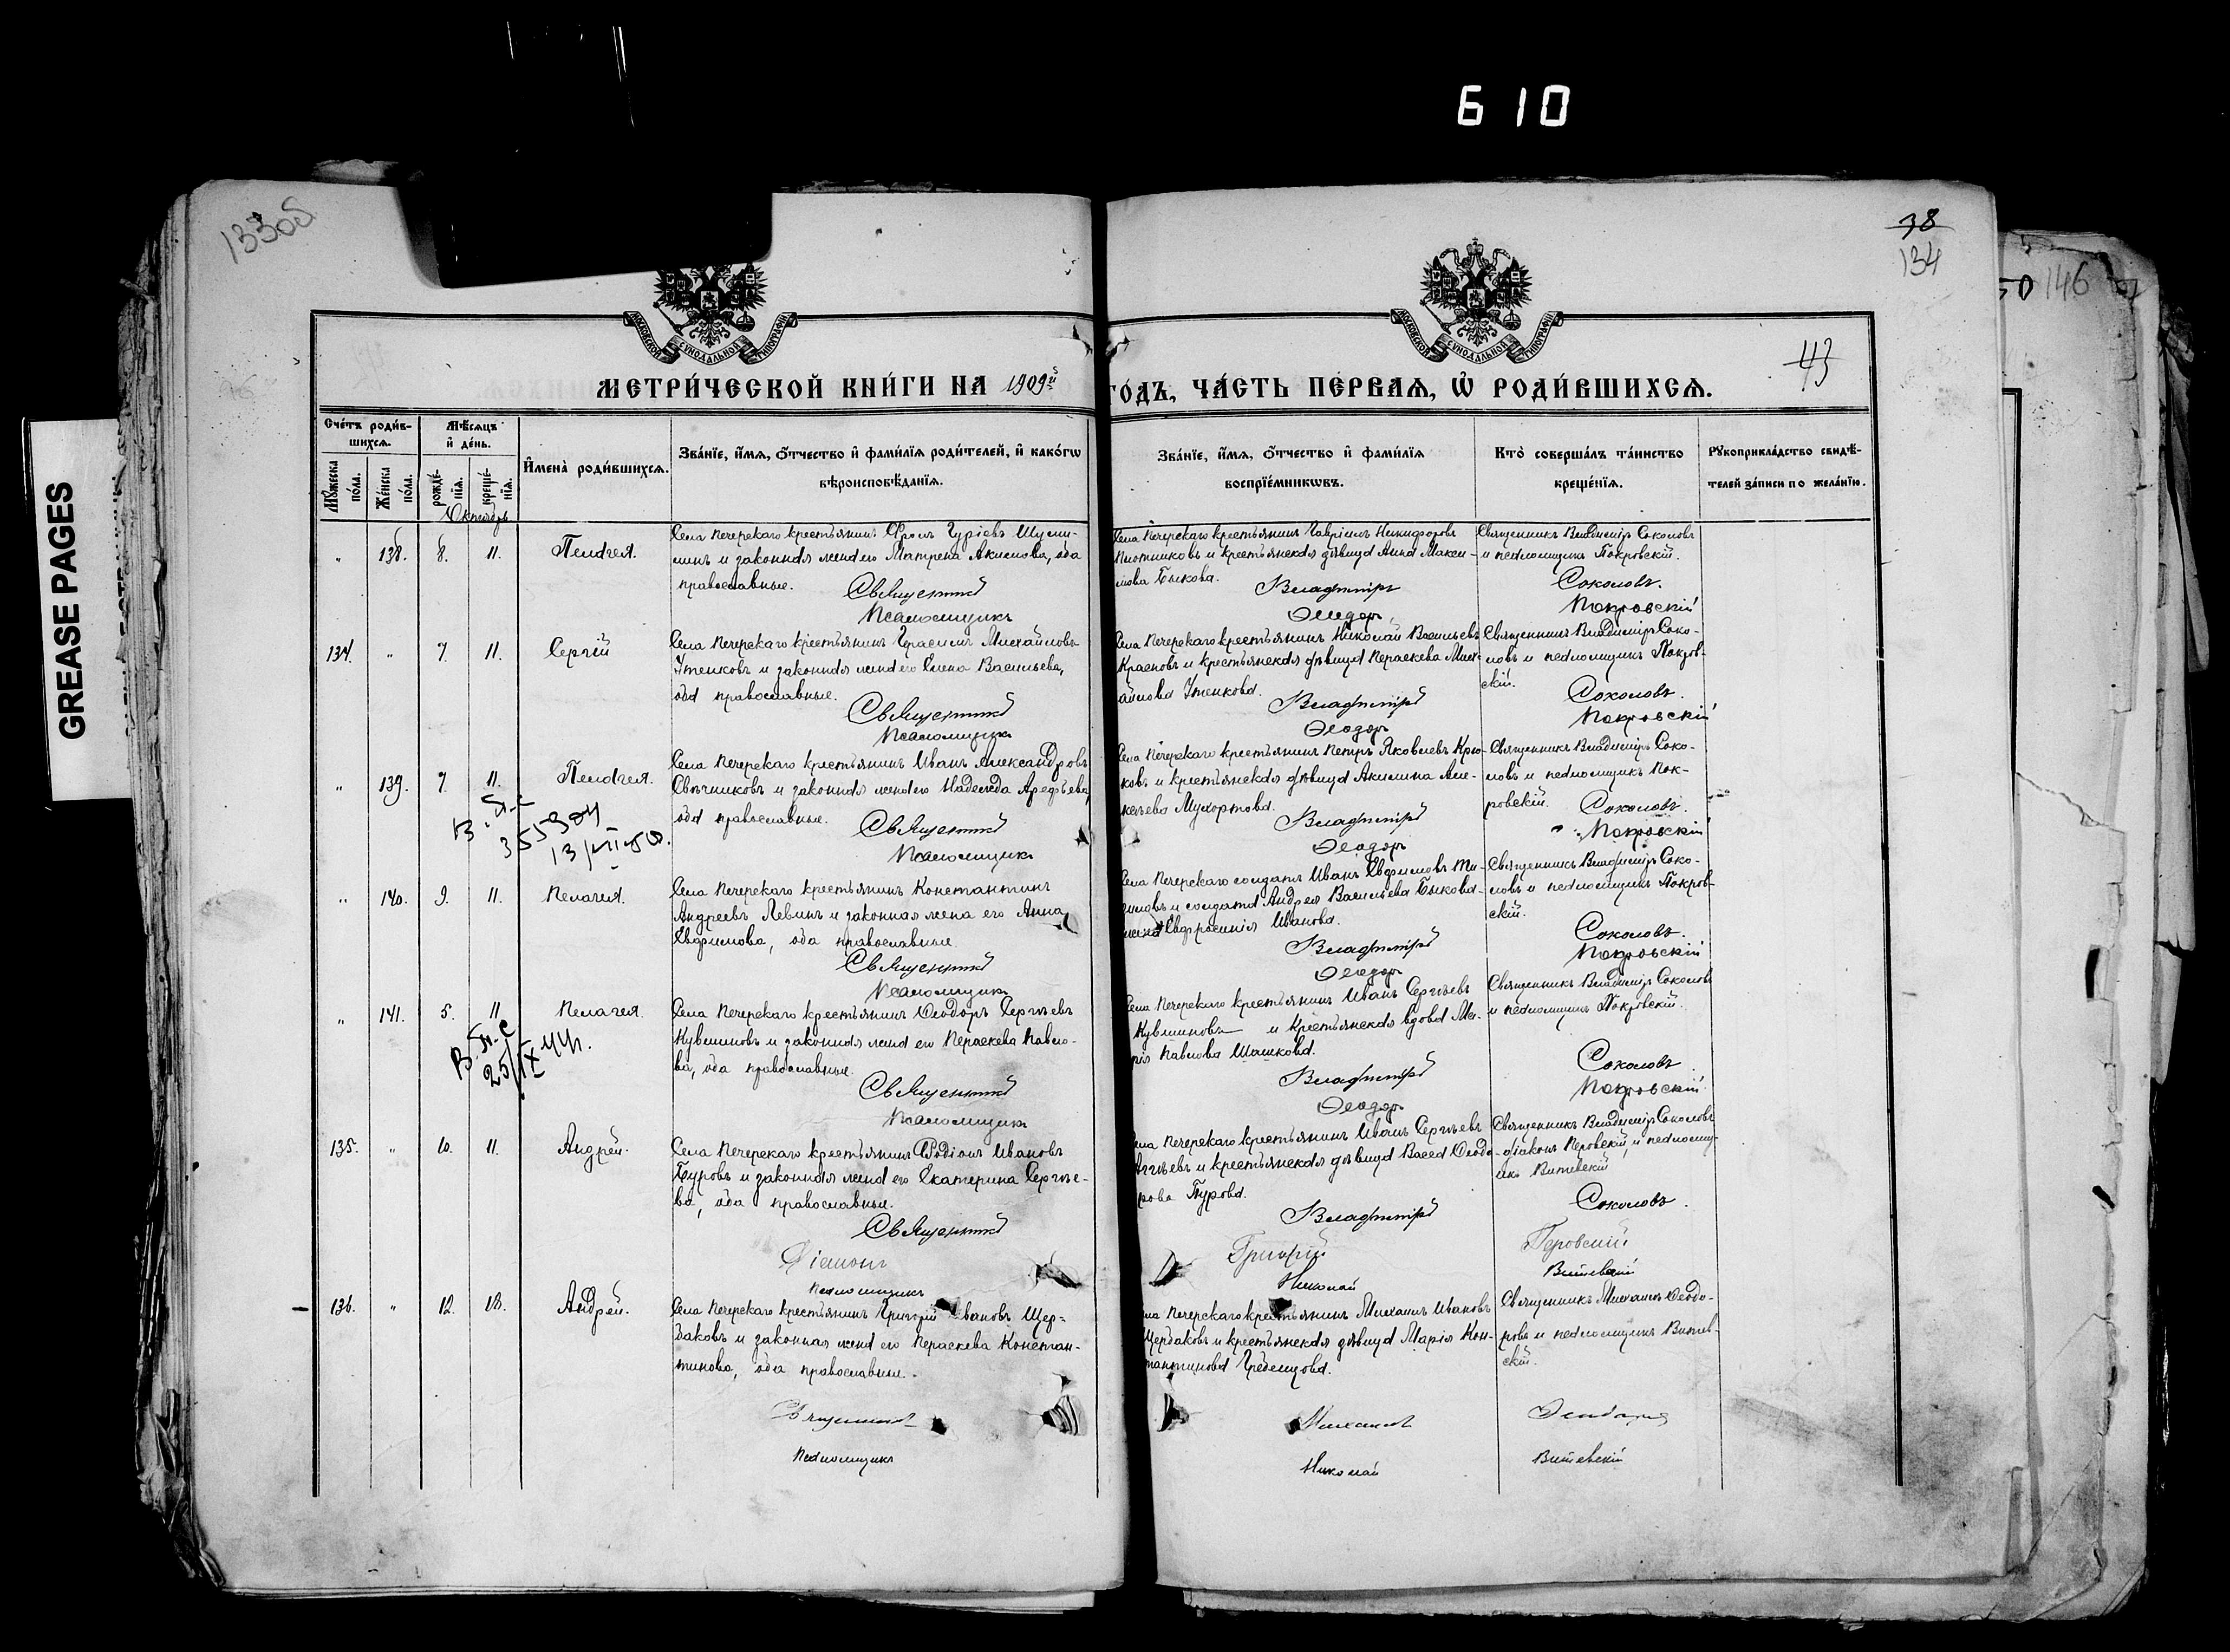 610
GREASE PAGES
133об
38
134
50 146
43
МОСКОВСКОЙ СѴНОДАЛЬНОЙ ТИПОГРАФІИ
МОСКОВСКОЙ СѴНОДАЛЬНОЙ ТИПОГРАФІИ
МЕТРИ́ЧЕСКОЙ КНИ́ГИ НА 1909й ГО́ДЪ, ЧА́СТЬ ПЕ́РВАЯ, Ѡ҆ РОДИ́ВШИХСЯ.
Сче́тъ роди́в-
шихся.
Мѣ́сяцъ
и҆ де́нь.
Му́жеска по́ла.
Же́нска по́ла.
рожде́-
нїя.
креще́-
нїя.
И҆мена̀ роди́вшихся.
Зва́нїе, и҆́мя, о҆́тчество и҆ фами́лїя роди́телей, и҆ како́гѡ
вѣроисповѣ́данїя.
Зва́нїе, и҆́мя, о҆́тчество и҆ фами́лїя
воспрїе́мникѡвъ.
Кто̀ соверша́лъ та́инство
креще́нїя.
Рукоприкла́дство свидѣ́-
телей за́писи по жела́нїю.
Октябрь
" 138. 8. 11. Пелагея.
Села Печерскаго крестьянинъ Фролъ Гуріевъ Шуми-
линъ и законная жена его Матрена Акимова, оба
православные.
Священникъ
Псаломщикъ
Села Печерскаго крестьянинъ Гавріилъ Никифоровъ
Плотниковъ и крестьянская дѣвица Анна Макси-
мова Быкова.
Владиміръ
Ѳеодоръ
Священникъ Владиміръ Соколовъ
и псаломщикъ Покровскій.
Соколовъ.
Покровскій
134. " 7. 11. Сергій
Села Печерскаго крестьянинъ Герасимъ Михайловъ
Утенковъ и законная жена его Елена Васильева,
оба православные.
Священникъ
Псаломщикъ
Села Печерскаго крестьянинъ Николай Васильевъ
Красновъ и крестьянская дѣвица Параскева Миха-
айлова Утенкова.
Владиміръ
Ѳеодоръ
Священникъ Владиміръ Соко-
ловъ и псаломщикъ Покров-
скій.
Соколовъ.
Покровскій
" 139. 7. 11. Пелагея.
В. п-с
13/VII 50.
Села Печерскаго крестьянинъ Иванъ Александровъ
Свѣчниковъ и законная жена его Надежда Арефьева,
оба православные.
Священникъ
Псаломщикъ
Села Печерскаго крестьянинъ Петръ Яковлевъ Крю-
ковъ и крестьянская дѣвица Акилина Але-
ксѣева Мухортова.
Владиміръ
Ѳеодоръ
Священникъ Владиміръ Соко-
ловъ и псаломщикъ Пок-
ровскій.
Соколовъ.
Покровскій
" 140. 9. 11. Пелагея.
Села Печерскаго крестьянинъ Константинъ
Андреевъ Левинъ и законная жена его Анна
Евфимова, оба православные
Священникъ
Псаломщикъ
Села Печерскаго солдатъ Иванъ Евфимовъ
и солдата Андрея Васильева Быкова
жена Евфросинія Иванова.
Владиміръ
Ѳеодоръ
Священникъ Владиміръ Соко-
ловъ и псаломщикъ Покров-
скій.
Соколовъ.
Покровскій
" 141. 5. 11 Пелагея.
В. п-с
25/IX 44г.
Села Печерскаго крестьянинъ Ѳеодоръ Сергѣевъ
Кувшиновъ и законная жена его Параскева Павло-
ва, оба православные.
Священникъ
Псаломщикъ
Села Печерскаго крестьянинъ Иванъ Сергѣевъ
Кувшиновъ и крестьянская вдова Ма-
рія Павлова Шашкова.
Владиміръ
Ѳеодоръ
Священникъ Владиміръ Соколовъ
и псаломщикъ Покровскій.
Соколовъ
Покровскій
135. " 10. 11. Андрей.
Села Печерскаго крестьянинъ Родіонъ Ивановъ
Буровъ и законная жена его Екатерина Сергѣе-
ва, оба православные.
Священникъ
Діаконъ
Псаломщикъ
Села Печерскаго крестьянинъ Иванъ Сергѣевъ
и крестьянская дѣвица Васса Ѳеодо-
рова Бурова.
Владиміръ
Григорій
Николай
Священникъ Владиміръ Соколовъ
діаконъ Перовскій, и псаломщ-
икъ Витевскій
Соколовъ.
Перовскій
Витевскій
136. " 12. 18. Андрей.
Села Печерскаго крестьянинъ Григорій Ивановъ Щер-
баковъ и законная жена его Параскева Констан-
тинова, оба православные.
Священникъ
Псаломщикъ
Села Печерскаго крестьянинъ Михаилъ Ивановъ
Щербаковъ и крестьянская дѣвица Марія Кон-
стантинова Гребенцова.
Михаилъ
Николай
Священникъ Михаилъ Ѳеодо-
ровъ и псаломщикъ Витев-
скій.
Ѳеодоровъ
Витевскій